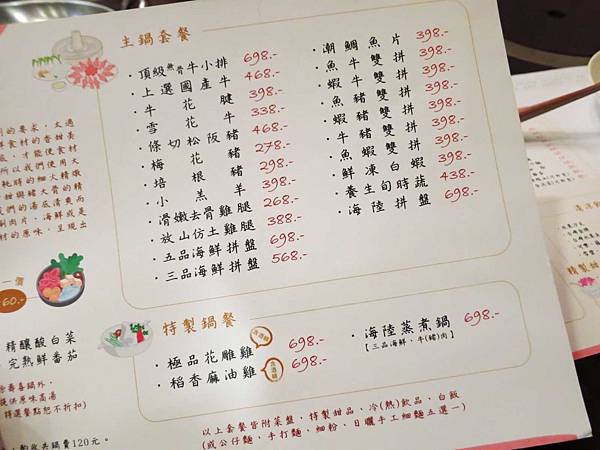 主鍋套餐
·頂級無骨牛小排 698.-
·上選國產牛 468.-
·牛花腱 398.-
·雪花牛 338.-
·條切松阪豬 468.-
·梅花豬 278.-
·培根豬 298.-
·小羔羊 398.-
·滑嫩去骨雞腿 268.-
·放山仿土雞腿 388.-
·五品海鮮拼盤 698.-
·三品海鮮拼盤 568.-
·潮鯛魚片 398.-
·魚牛雙拼 398.-
·蝦牛雙拼 398.-
·魚豬雙拼 398.-
·蝦豬雙拼 398.-
·牛豬雙拼 398.-
·魚蝦雙拼 398.-
·鮮凍白蝦 398.-
·養生旬時蔬 438.-
·海陸拼盤 698.-
特製鍋餐
·極品花雕雞 698.-
·稻香麻油雞 698.-
·海陸蒸煮鍋 698.-
【三品海鮮、牛(豬)肉】
以上套餐皆附菜盤、特製甜品、冷(熱)飲品、白飯
(或公仔麵、手打麵、細粉、日曬手工細麵五選一)
的要求，太過
食材的香甜美
底，才能使食材
所以我們使用大
耗時的細火精燉
甜與豬大骨的精
們的湯底清爽而
涮肉片、海鮮或是
材的原味，呈現出
一價
60.-
精釀酸白菜
完熟鮮番茄
壽喜鍋外，
提供原味高湯
特選餐點恕不折扣)
酌收共鍋費120元。